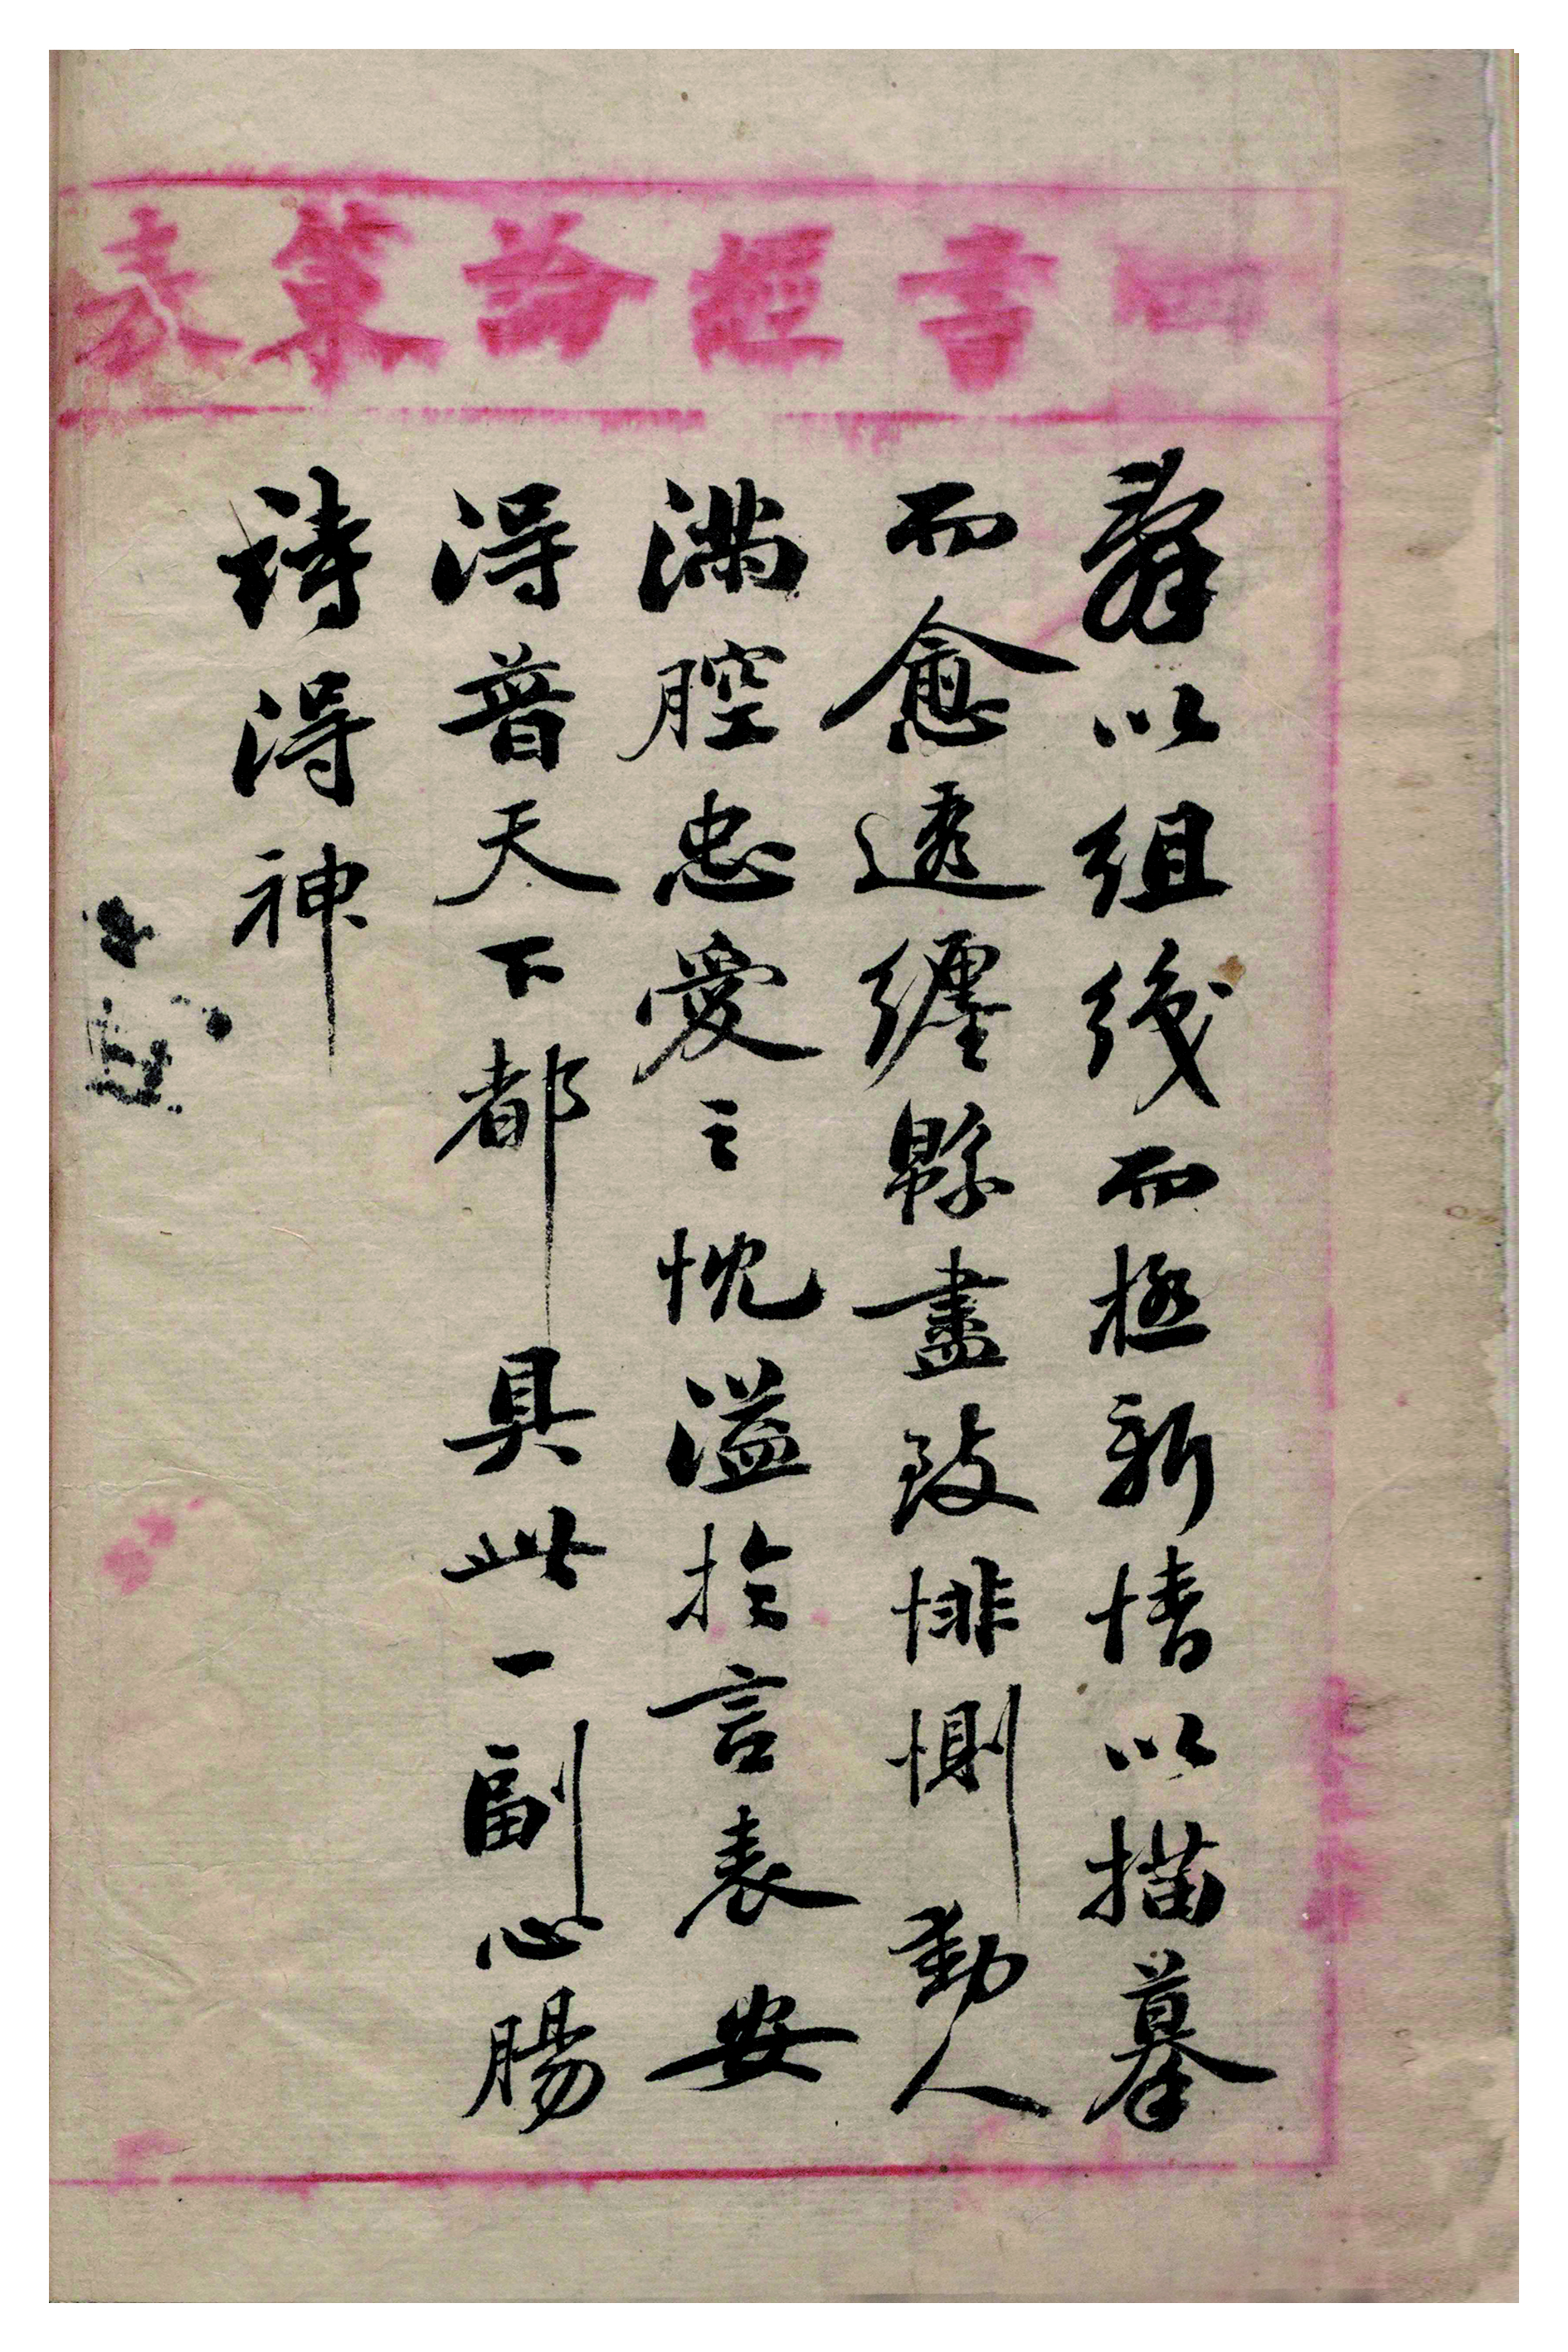 四書經論策表
辭以組織而極新情以描摹
而愈透纏緜盡致悱惻動人
滿腔忠愛之忱溢於言表安
得普天下都具此一副心腸
詩得神